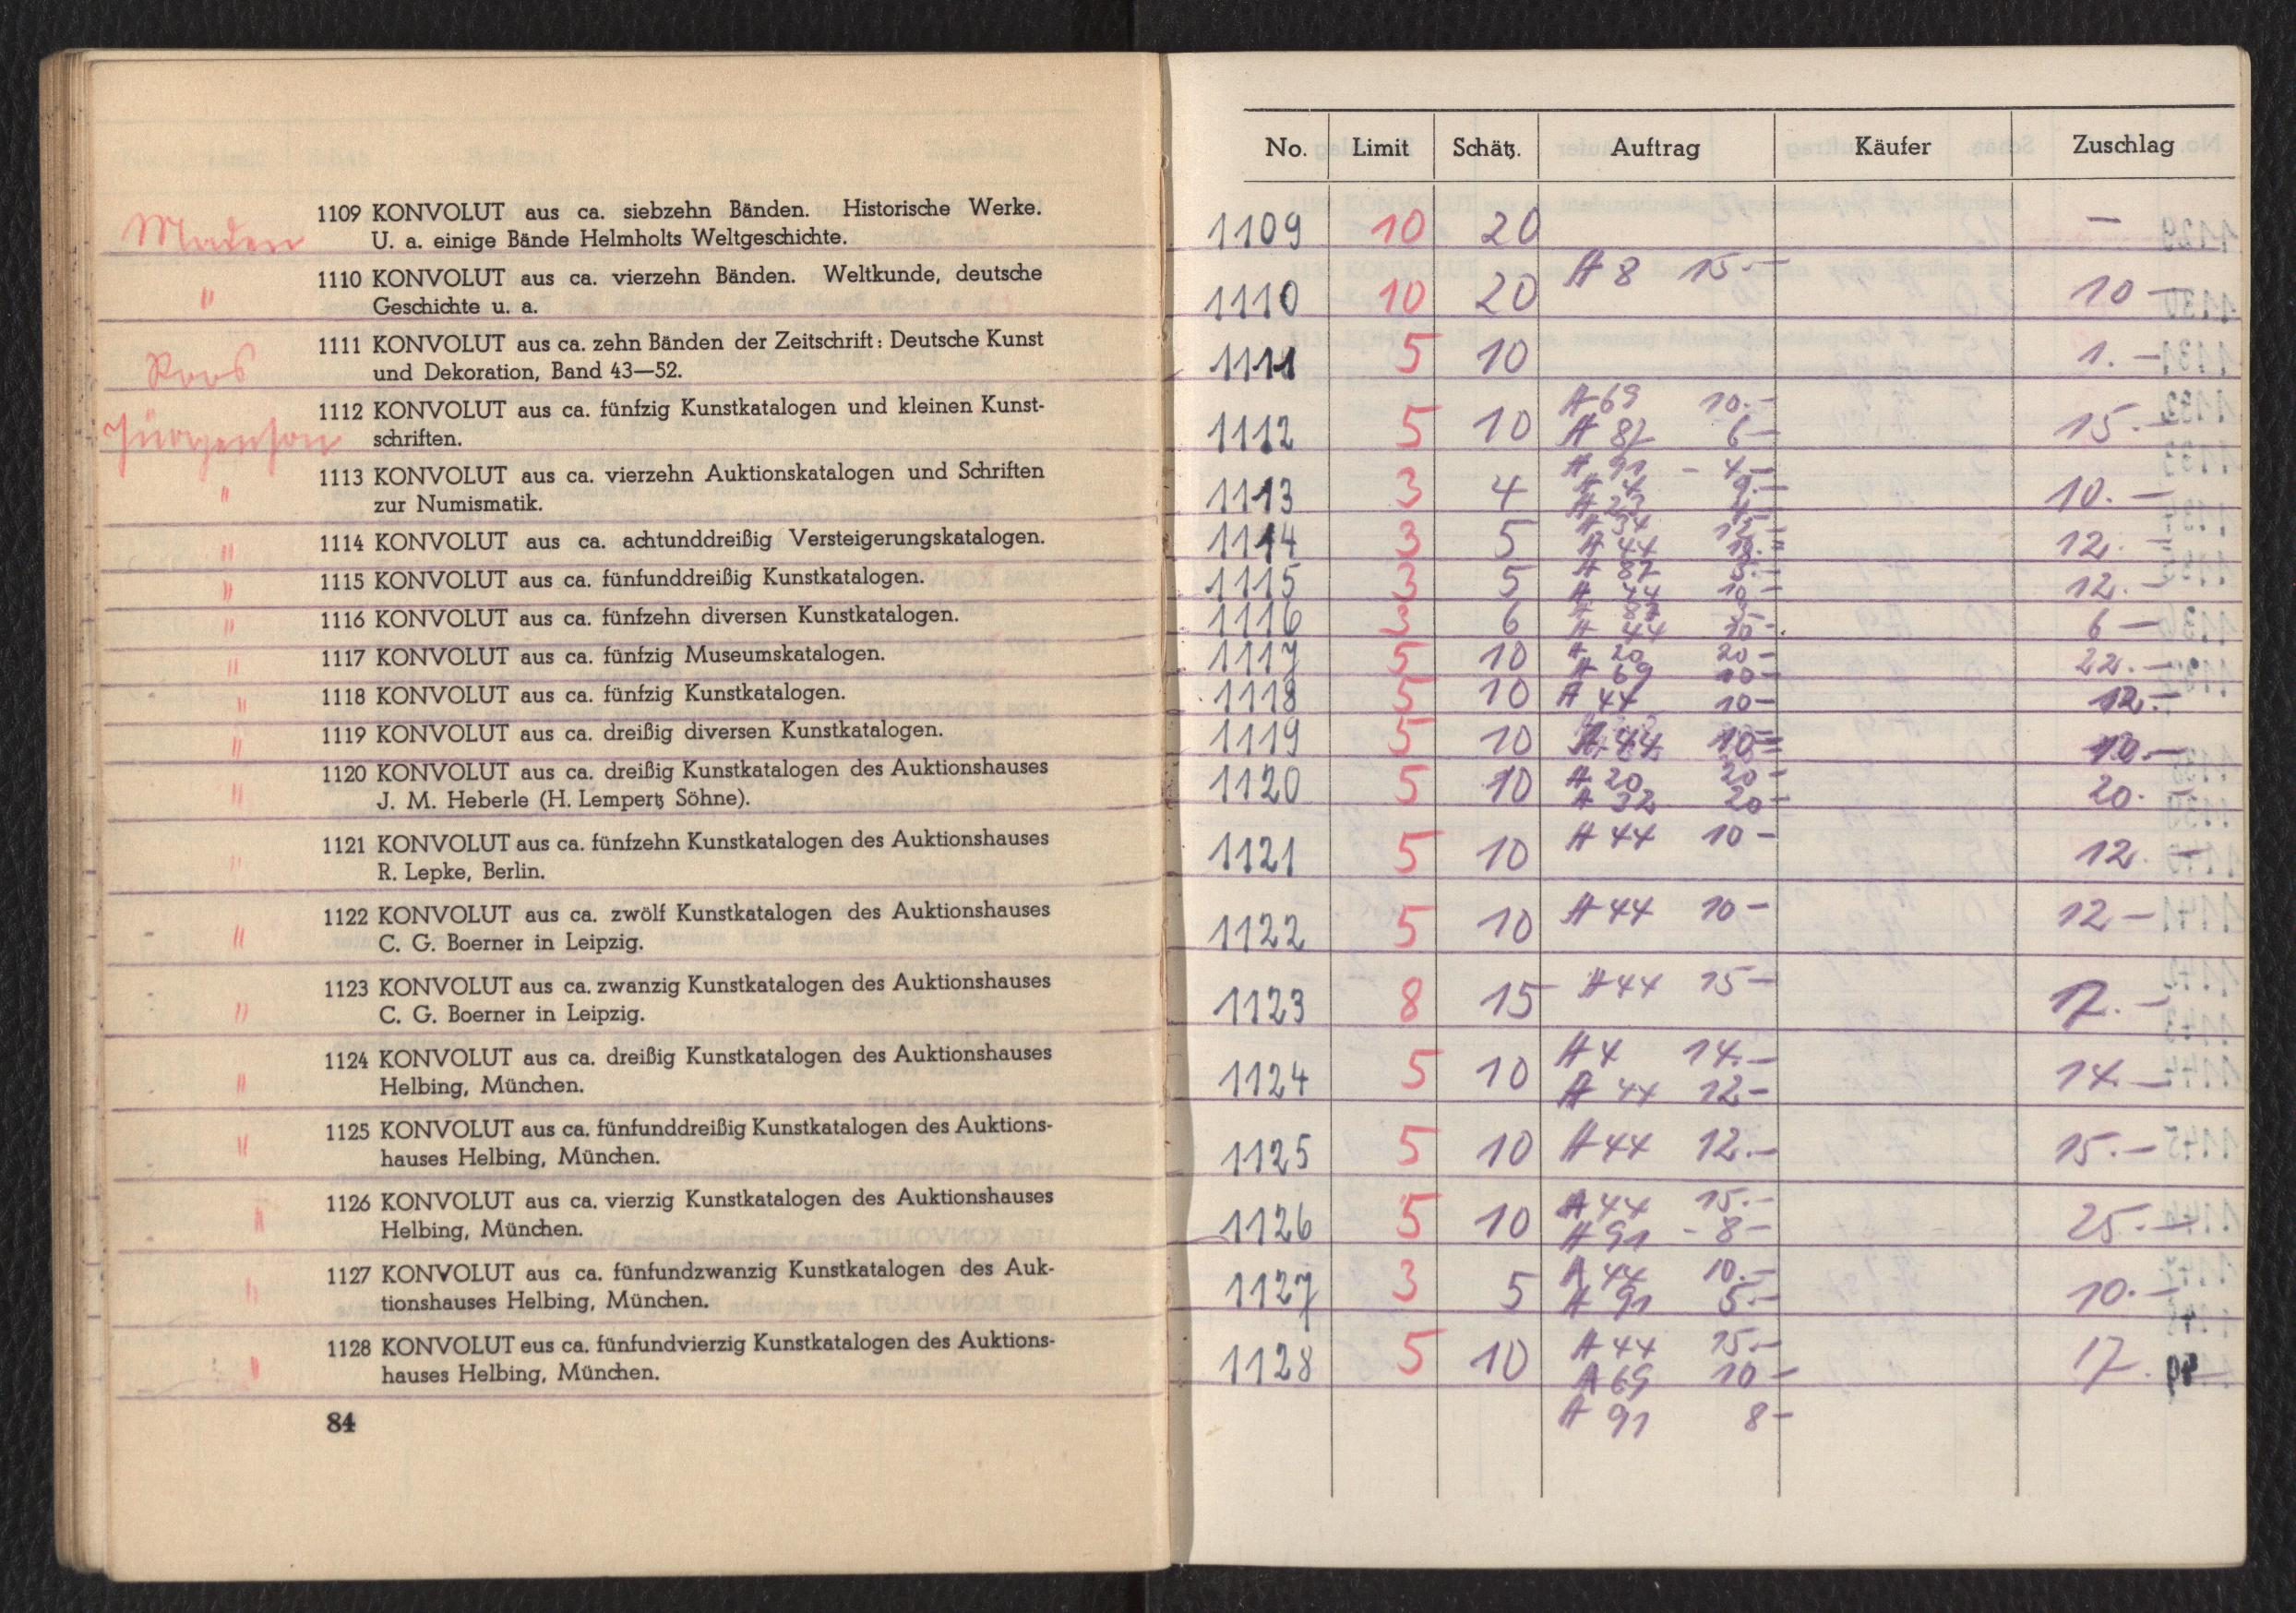 Maden
1109 KONVOLUT aus ca. siebzehn Bänden. Historische Werke.
U. a. einige Bände Helmholts Weltgeschichte.
"
1110 KONVOLUT aus ca. vierzehn Bänden. Weltkunde, deutsche
Geschichte u. a.
Roos
1111 KONVOLUT aus ca. zehn Bänden der Zeitschrift: Deutsche Kunst
und Dekoration, Band 43—52.
Jürgenson
1112 KONVOLUT aus ca. fünfzig Kunstkatalogen und kleinen Kunst-
schriften.
"
1113 KONVOLUT aus ca. vierzehn Auktionskatalogen und Schriften
zur Numismatik.
" 1114 KONVOLUT aus ca. achtunddreißig Versteigerungskatalogen.
" 1115 KONVOLUT aus ca. fünfunddreißig Kunstkatalogen.
" 1116 KONVOLUT aus ca. fünfzehn diversen Kunstkatalogen.
" 1117 KONVOLUT aus ca. fünfzig Museumskatalogen.
" 1118 KONVOLUT aus ca. fünfzig Kunstkatalogen.
" 1119 KONVOLUT aus ca. dreißig diversen Kunstkatalogen.
" 1120 KONVOLUT aus ca. dreißig Kunstkatalogen des Auktionshauses
J. M. Heberle (H. Lempertz Söhne).
" 1121 KONVOLUT aus ca. fünfzehn Kunstkatalogen des Auktionshauses
R. Lepke, Berlin.
" 1122 KONVOLUT aus ca. zwölf Kunstkatalogen des Auktionshauses
C. G. Boerner in Leipzig.
" 1123 KONVOLUT aus ca. zwanzig Kunstkatalogen des Auktionshauses
C. G. Boerner in Leipzig.
" 1124 KONVOLUT aus ca. dreißig Kunstkatalogen des Auktionshauses
Helbing, München.
" 1125 KONVOLUT aus ca. fünfunddreißig Kunstkatalogen des Auktions-
hauses Helbing, München.
" 1126 KONVOLUT aus ca. vierzig Kunstkatalogen des Auktionshauses
Helbing, München.
" 1127 KONVOLUT aus ca. fünfundzwanzig Kunstkatalogen des Auk-
tionshauses Helbing, München.
" 1128 KONVOLUT eus ca. fünfundvierzig Kunstkatalogen des Auktions-
hauses Helbing, München.
84
No. Limit Schätz. Auftrag Käufer Zuschlag
1109 10 20 —
A 8 15.-
1110 10 20 10 —
1111 5 10 1. —
A 69 10.-
1112 5 10 A 82 6 — 15. —
A 91 - 4.-
1113 3 4 A 4 9.- 10. —
A 23
A 34
1114 3 5 A 44 12. —
A 82
1115 3 5 A 44 10 - 12. —
1116 6 A 44 10 - 6 —
1117 5 10 A 20 20 - 22. —
A 69 10 -
1118 5 10 A 44 10 - 12. —
1119 5 10 A 44 10 - 10. —
1120 5 10 A 20 20 - 20. —
A 32 20 -
1121 5 10 A 44 10 - 12. —
1122 5 10 A 44 10 - 12 —
1123 8 15 A 44 15 - 17. —
A 4 14. -
1124 5 10 A 44 12 - 14. —
1125 5 10 A 44 12. - 15. —
A 44 15. -
1126 5 10 A 91 - 8 - 25. —
A 44 10. -
1127 3 5 A 91 5. - 10. —
A 44 15. -
1128 5 10 A 69 10 - 17.
A 91 8 -